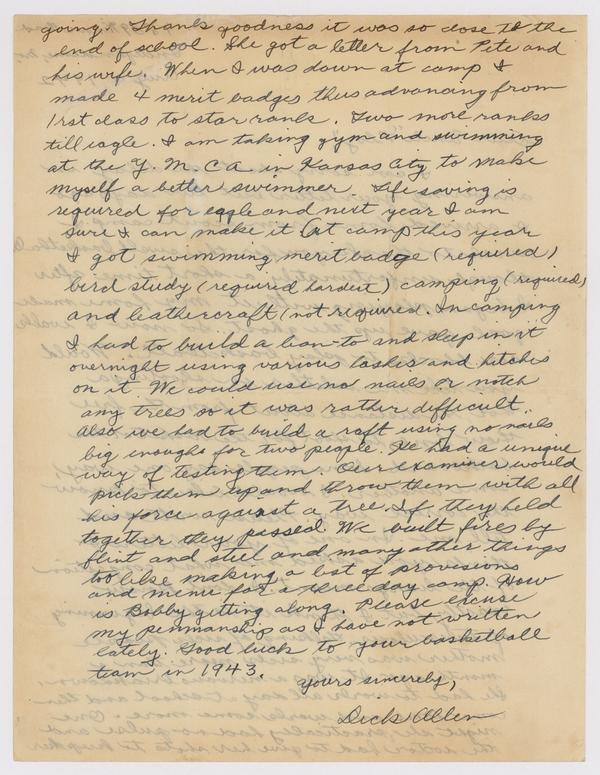 going. Thank goodness it was so close to the
end of school. She got a letter from Pete and
his wife. When I was down at camp I
made 4 merit badges thus advancing from
1rst class to star rank. Two more ranks
till eagle. I am taking gym and swimming
at the Y. M. C A. in Kansas City to make
myself a better swimmer. Life saving is
required for eagle and next year I am
sure I can make it. At camp this year
I got swimming merit badge (required)
bird study (required hardest) camping (required)
and leathercraft (not required. In camping
I had to build a lean-to and sleep in it
overnight using various lashes and hitches
on it. We could use no nails or notch
any trees so it was rather difficult.
Also we had to build a raft using no nails
big enough for two people. He had a unique
way of testing them. Our examiner would
pick them up and throw them with all
his force against a tree. If they held
together they passed. We built fires by
flint and steel and many other things
too like making a list of provisions
and menu for a three day camp. How
is Bobby getting along. Please excuse
my penmanship as I have not written
lately. Good luck to your basketball
team in 1943.
Yours sincerely,
Dick Allen